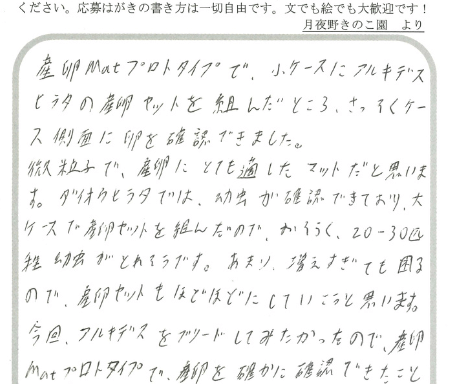 ください。応募はがきの書き方は一切自由です。文でも絵でも大歓迎です！
月夜野きのこ園　より
産卵Matプロトタイプで、小ケースにアルキデス
ヒラタの産卵セットを組んだところ、さっそくケー
ス側面に卵を確認できました。
微粒子で、産卵にとても適したマットだと思いま
す。ダイオウヒラタでは、幼虫が確認できており、大
ケースで産卵セットを組んだので、おそらく、20-30匹
程幼虫がとれそうです。あまり、増えすぎても困る
ので、産卵セットもほどほどにしていこうと思います。
今回、アルキデスをブリードしてみたかったので、産卵
Matプロトタイプで、産卵を確かに確認できたこと